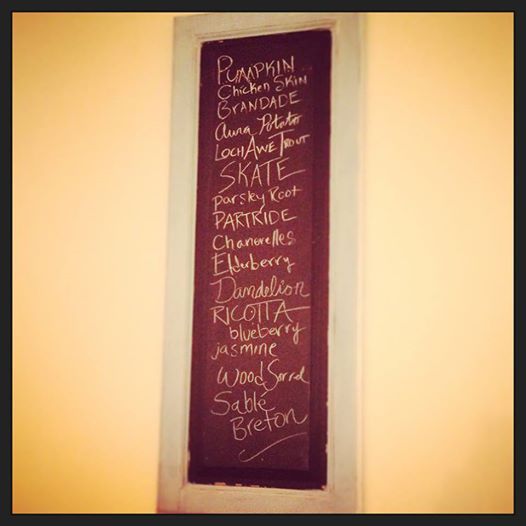 PUMPKIN
Chicken Skin
BRANDADE
aura Potato
LOCH AWE TROUT
SKATE
parsley Root
PARTRIDE
Chanerelles
Elderberry
Dandelion
RICOTTA
blueberry
jasmine
Wood Sorrel
Sablé
Breton